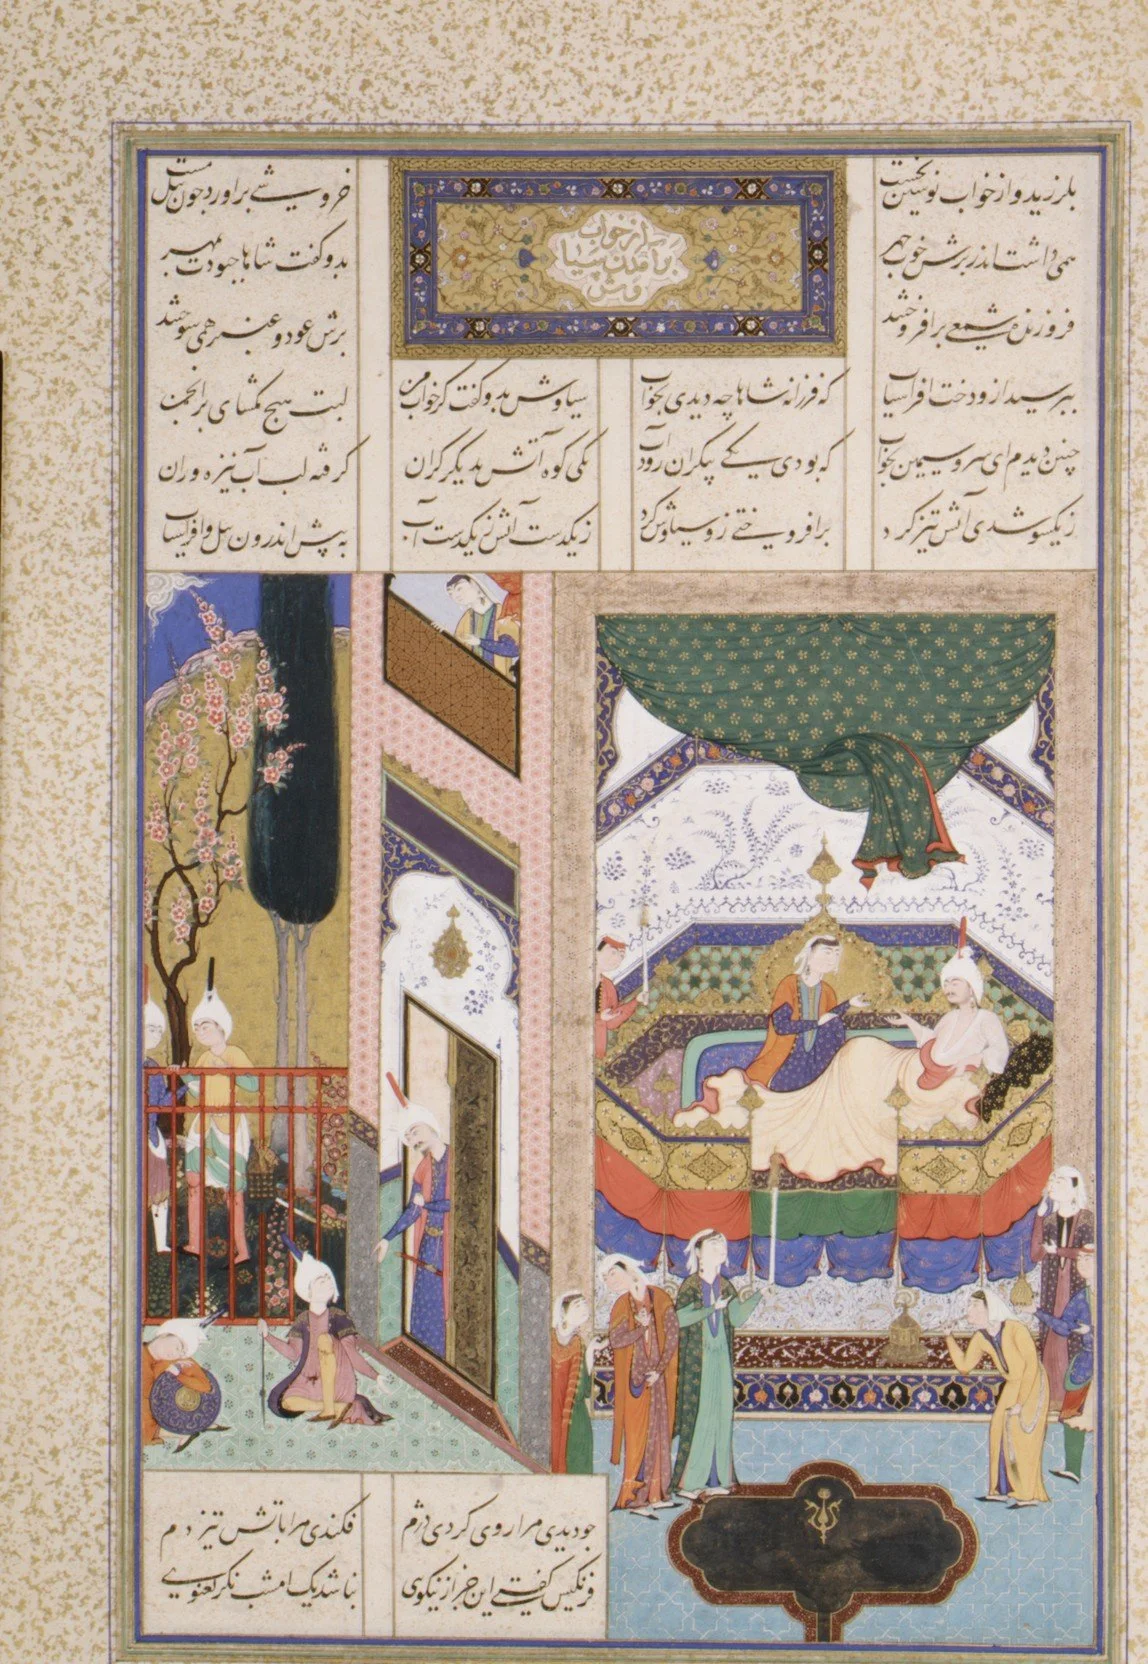 بلرزید و از خواب نوشین بجست خروشی براورد چون پیل مست
از خواب
برآمدن سیا
وش
همی داشت اندر برش خوب چهر بدو گفت شاها چبودت بمهر
فروزنده شمعی برافروختند برش عود و عنبر همی سوختند
بپرسید ازو دخت افراسیاب که فرزانه شاها چه دیدی بخواب سیاوش بدو گفت کز خواب من لبت هیچ مگشای بر انجمن
چنین دیدم ای سرو سیمین بخواب که بودی یکی بیکران رود آب یکی کوه آتش بدیگر کران گرفته لب آب نیزه وران
ز یکسو شدی آتش تیز کرد برافروختی زو سیاوش کرد ز یکدست آتش ز یکدست آب به پیش اندرون پیل و افراسیاب
چو دیدی مرا روی کردی دژم فکندی مرا باتش تیز دم
فرنگیس گفت این جز از نیکوی نباشد یک امشب نگر نغنوی